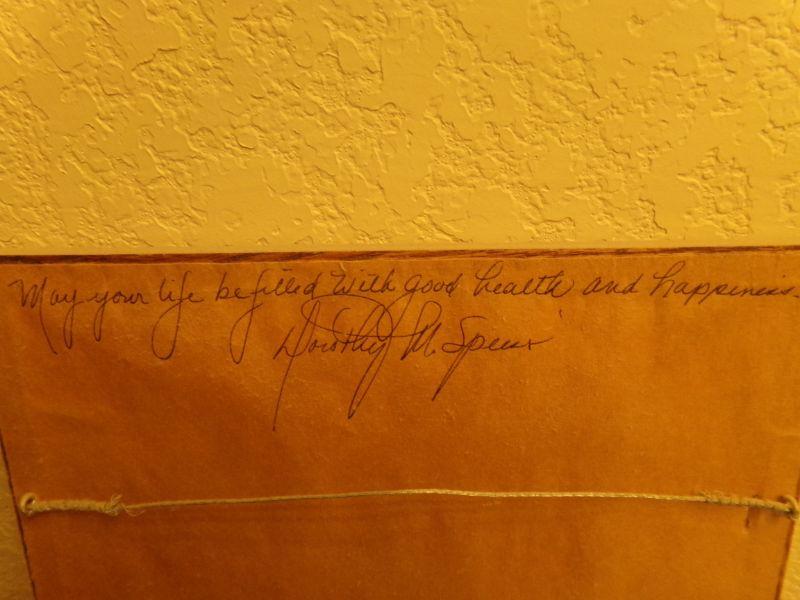 May your life be filled with good health and happiness.
Dorothy M.